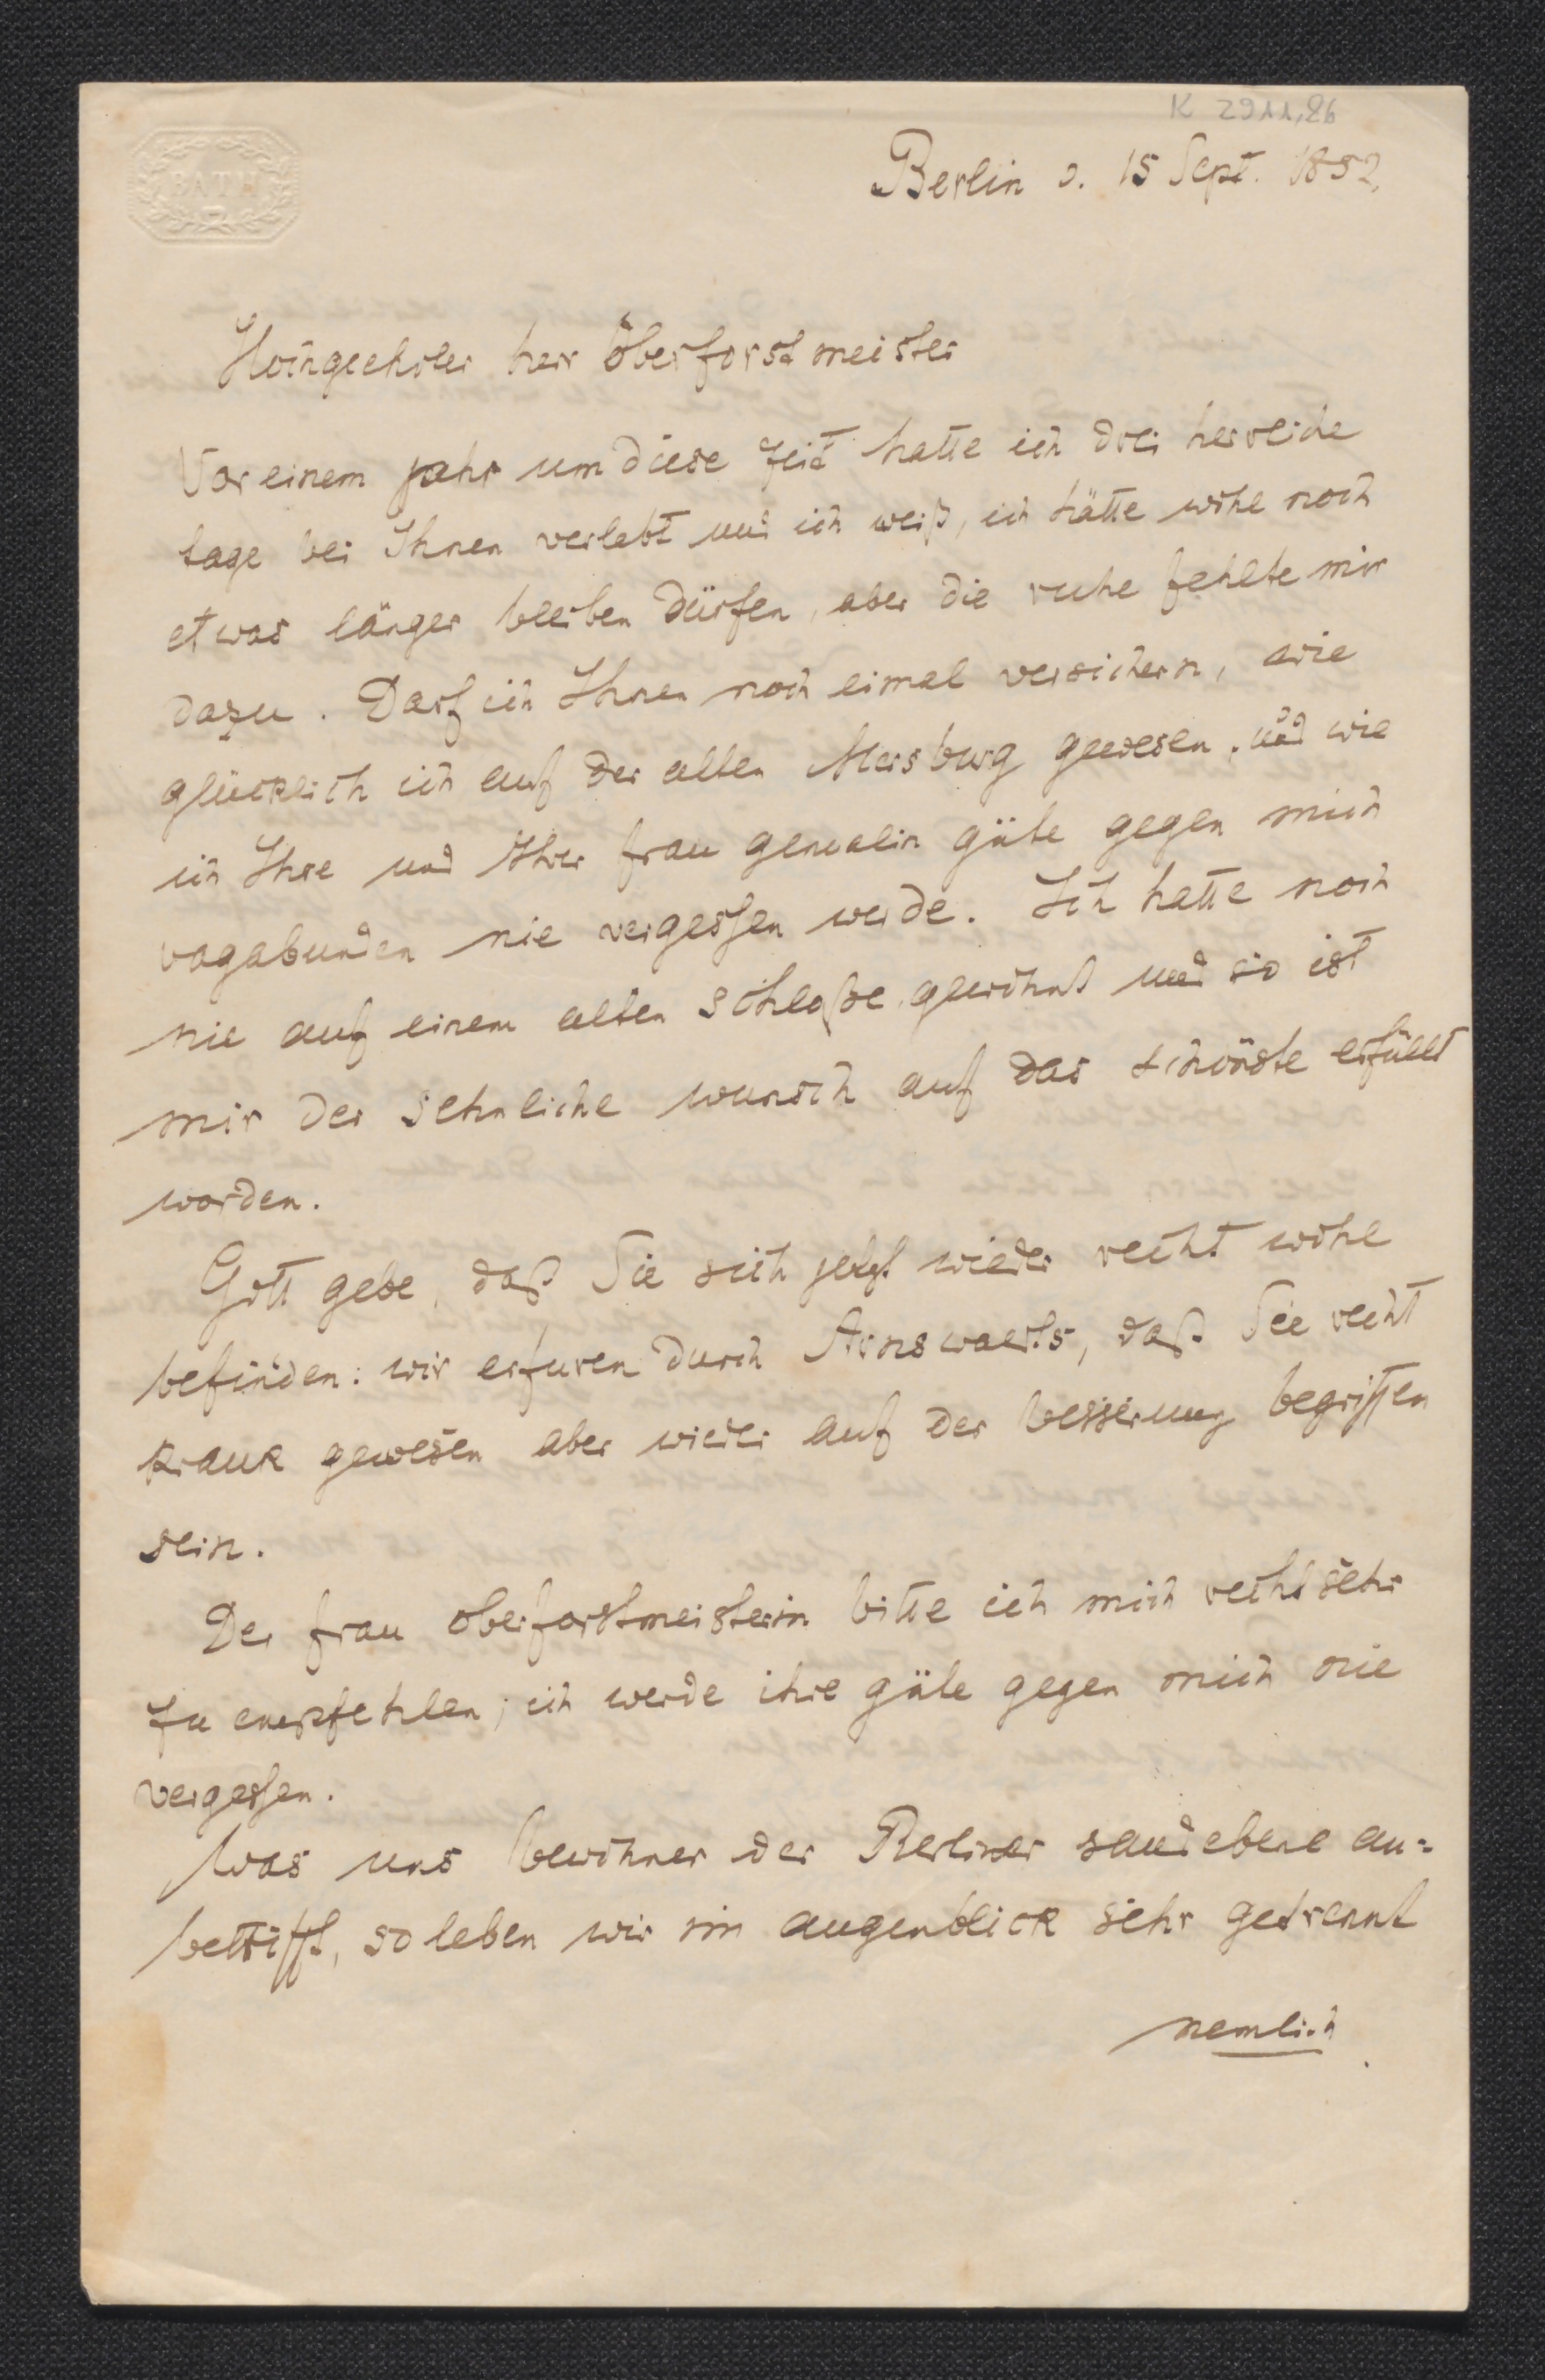 K 2911,26
BATH
Berlin d. 15 Sept. 1852.
Hochgeehrter herr Oberforstmeister
Vor einem jahr um diese Zeit hatte ich drei herrliche
tage bei Ihnen verlebt und ich weiß, ich hätte wohl noch
etwas länger bleiben dürfen, aber die ruhe fehlte mir
dazu. Darf ich Ihnen noch eimal versichern, wie
glücklich ich auf der alten Mersburg gewesen, und wie
ich Ihre und Ihrer frau gemalin güte gegen mich
vagabunden nie vergessen werde. Ich hatte noch
nie auf einem alten schloße gewohnt und so ist
mir der sehnliche wunsch auf das schönste erfüllt
worden.
Gott gebe, daß Sie sich jetzt wieder recht wohl
befinden: wir erfuren durch Arnswaldts, daß Sie recht
krank gewesen aber wieder auf der besserung begriffen
sein.
Der frau oberforstmeisterin bitte ich mich recht sehr
zu empfehlen; ich werde ihre güte gegen mich nie
vergessen.
Was uns bewohner der Berliner sandebene an=
betrifft, so leben wir im augenblick sehr getrennt
nemlich